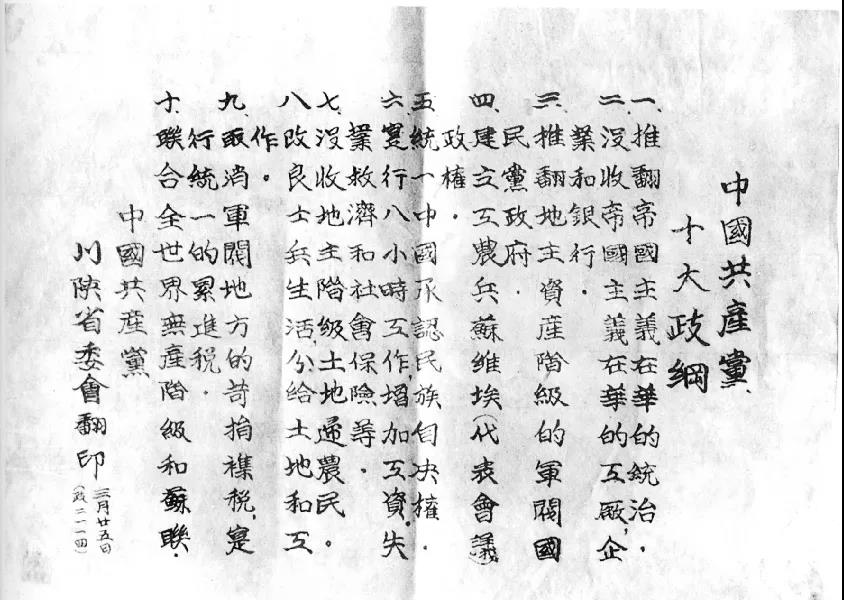 中國共產黨
十大政綱
一、推翻帝國主義在華的統治．
二、沒收帝國主義在華的工廠,企
業和銀行．
三、推翻地主資產階級的軍閥國
民黨政府．
四、建立工農兵蘇維埃(代表會議)
政權．
五、統一中國承認民族自决權．
六、寔行八小時工作,增加工資,失
業救濟和社會保險等．
七、沒收地主階級土地還農民。
八、改良士兵生活,分給土地和工
作。
九、取消軍閥地方的苛捐襍稅,寔
行統一的累進稅．
十、聯合全世界無產階級和蘇聯．
中國共產黨
川陝省委會翻印
三月廿五日
(政二一一四)